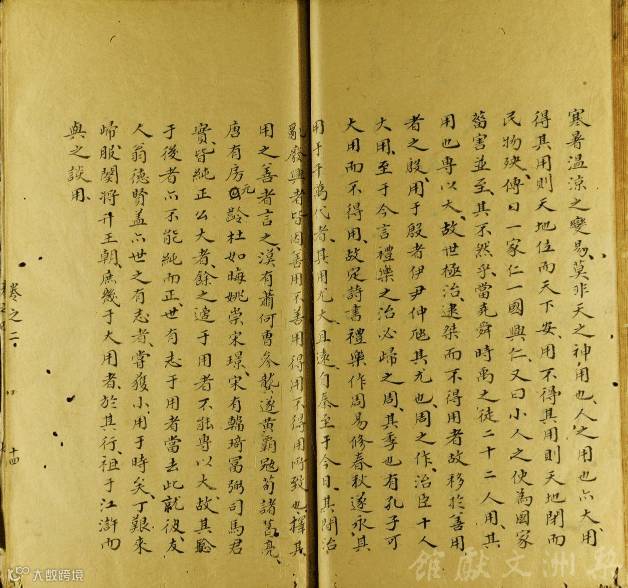 寒暑溫涼之變易莫非天之神用也人之用也亦大用
得其用則天地位而天下安用不得其用則天地閉而
民物殃傳曰一家仁一國興仁又曰小人之使為國家
菑害並至其不然乎當堯舜時禹之徒二十二人用其
用也專以大故世極治逮桀而不得用者故移於善用
者之殷用于殷者伊尹仲虺其尤也周之作治臣十人
大用至于今言禮樂之治必歸之周其季也有孔子可
大用而不得用故定詩書禮樂作周易修春秋遂永其
用于千萬代者其用尤大且遠自秦至于今日其間治
亂廢興者皆因善用不善用得用不得用所致也擇其
用之善者言之漢有蕭何曹參龔遂黃霸冠荀諸葛亮
唐有房玄齡杜如晦姚崇宋璟宋有韓琦富弼司馬君
實皆純正公大者餘之達于用者不能專以大故其驗
于後者亦不能純而正世有志于用者當去此就彼友
人翁德賢蓋亦世之有志者嘗獲小用于時矣丁艱來
歸服闋將升王朝庶幾于大用者於其行祖于江滸而
與之談用
卷之二
十四
大数跨境
株洲文獻館